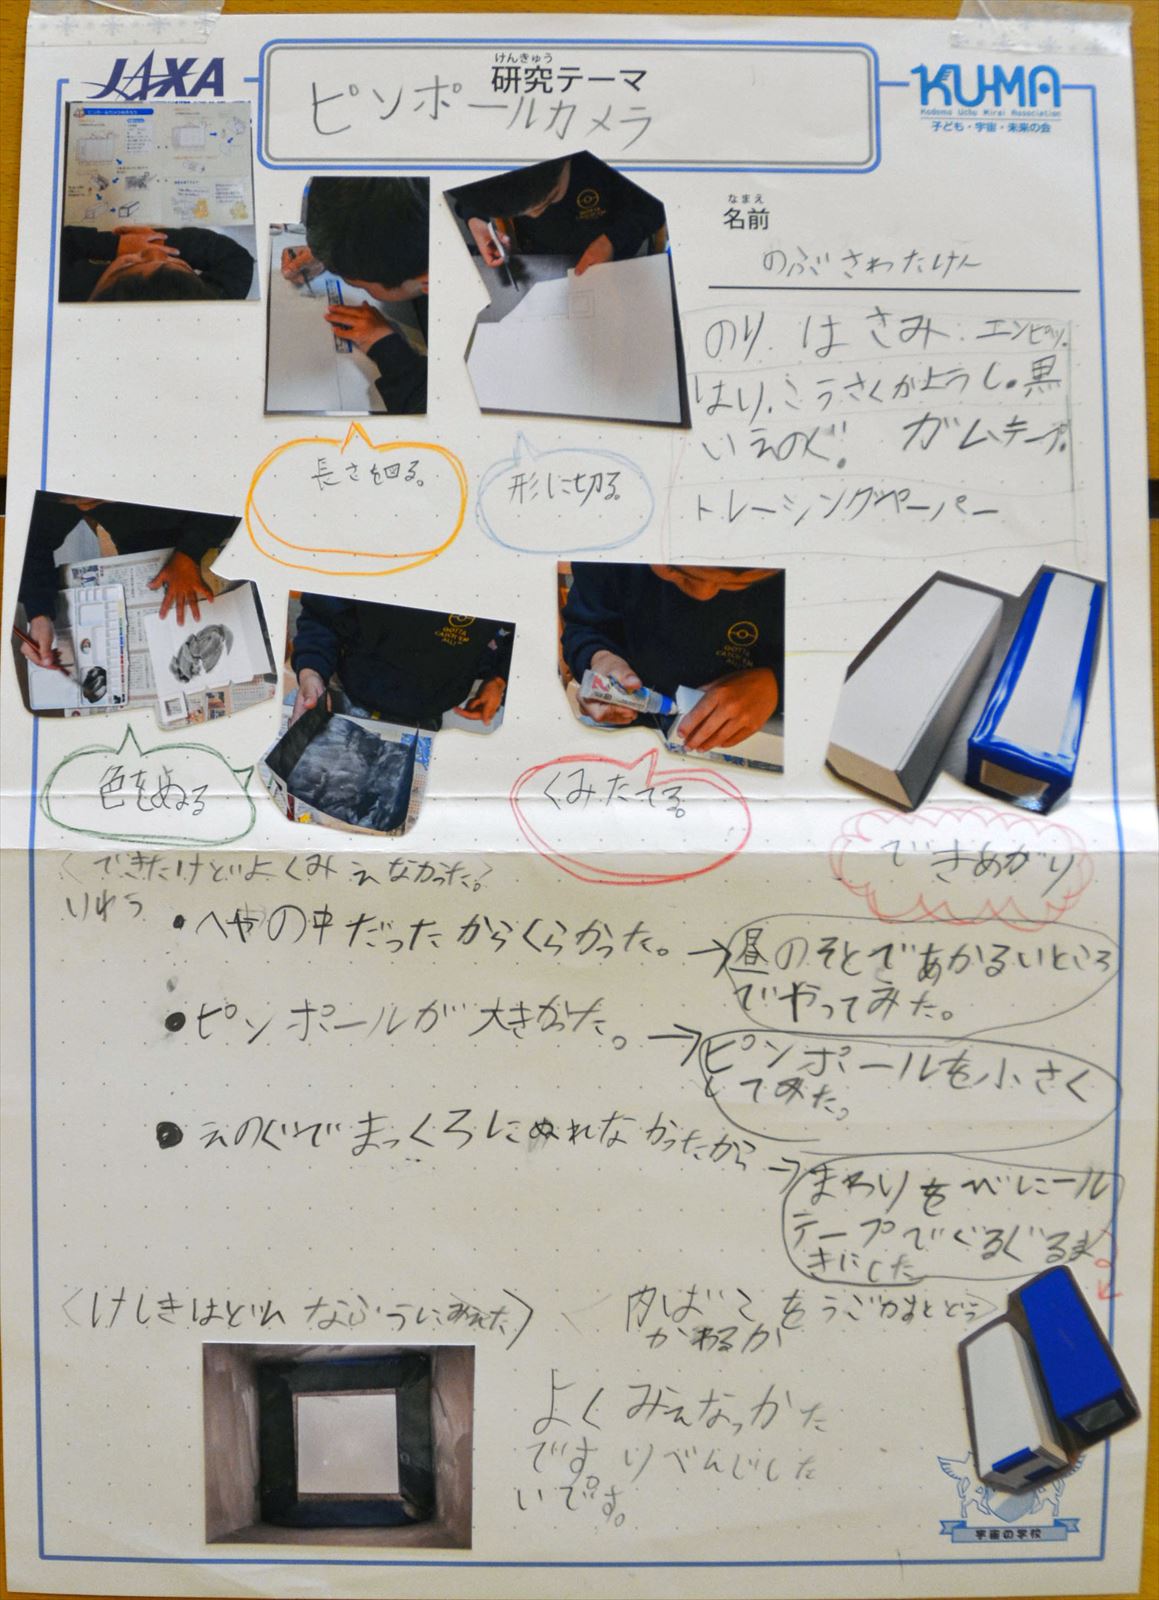 JAXA
けんきゅう
研究テーマ
ピンポールカメラ
KU-MA
Kodomo Uchu Mirai Association
子ども・宇宙・未来の会
なまえ
名前
のぶさわたけん
のり はさみ エンピツ.
はり.こうさくがようし.黒
いえのぐ. ガムテープ.
トレーシングペーパー
長さを図る。
形に切る。
GOTTA
CATCH 'EM
ALL
色をぬる
くみたてる。
できあがり
〈できたけどよくみえなかった。〉
りゆう
・へやの中だったからくらかった。→
昼のそとであかるいところ
でやってみた。
・ピンポールが大きかった。→
ピンポールを小さく
してみた。
・えのぐでまっくろにぬれなかったから→
まわりをべニール
テープでぐるぐるま
きにした
〈けしきはどんなふうにみえた〉
〈内ばこをうごかすとどう
かわるか〉
よくみえなっかた
です。りべんじした
いです。
宇宙の学校